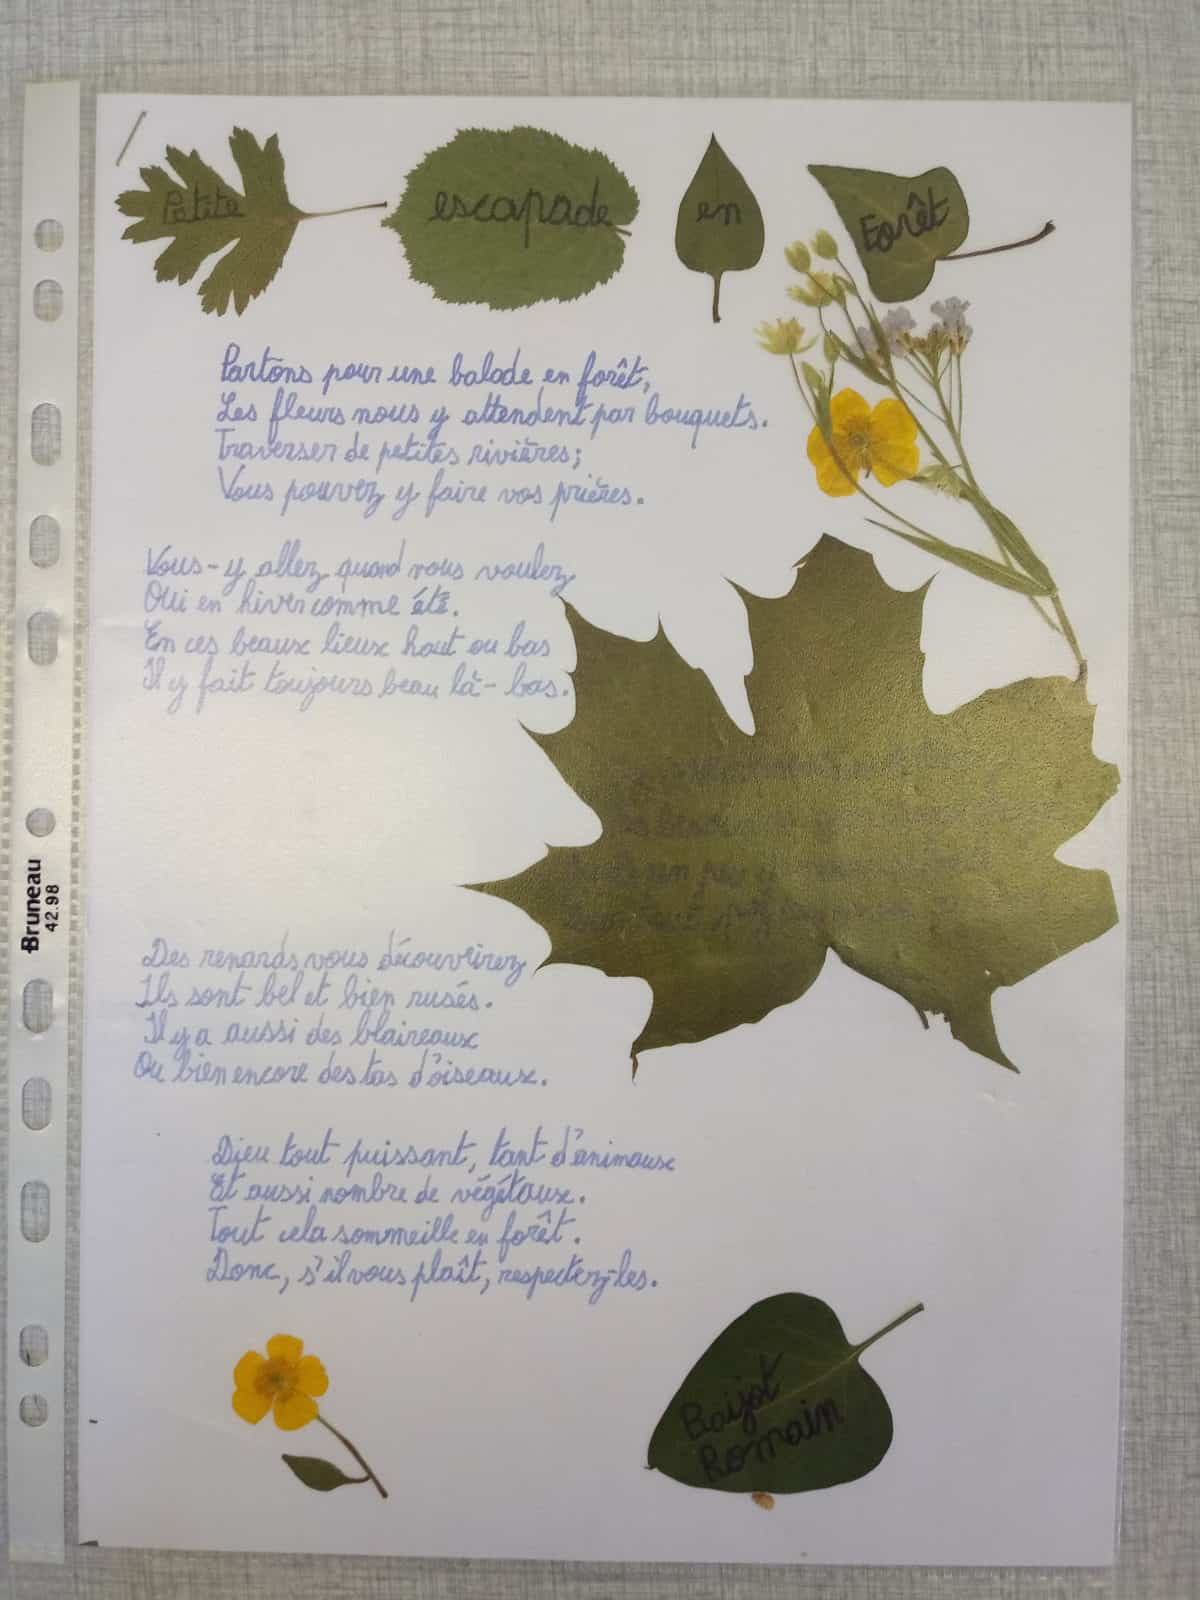 Petite escapade en Forêt
Partons pour une balade en forêt,
Les fleurs nous y attendent par bouquets.
Traverser de petites rivières;
Vous pouvez y faire vos prières.
Vous-y allez quand vous voulez
Oui en hiver comme été.
En ces beaux lieux haut ou bas
Il y fait toujours beau là-bas.
un peu
Des renards vous découvrirez
Ils sont bel et bien rusés.
Il y a aussi des blaireaux
Ou bien encore des tas d'oiseaux.
Dieu tout puissant, tant d'animaux
Et aussi nombre de végétaux.
Tout cela sommeille en forêt.
Donc, s'il vous plaît, respectez-les.
Romain
Bruneau
42.98